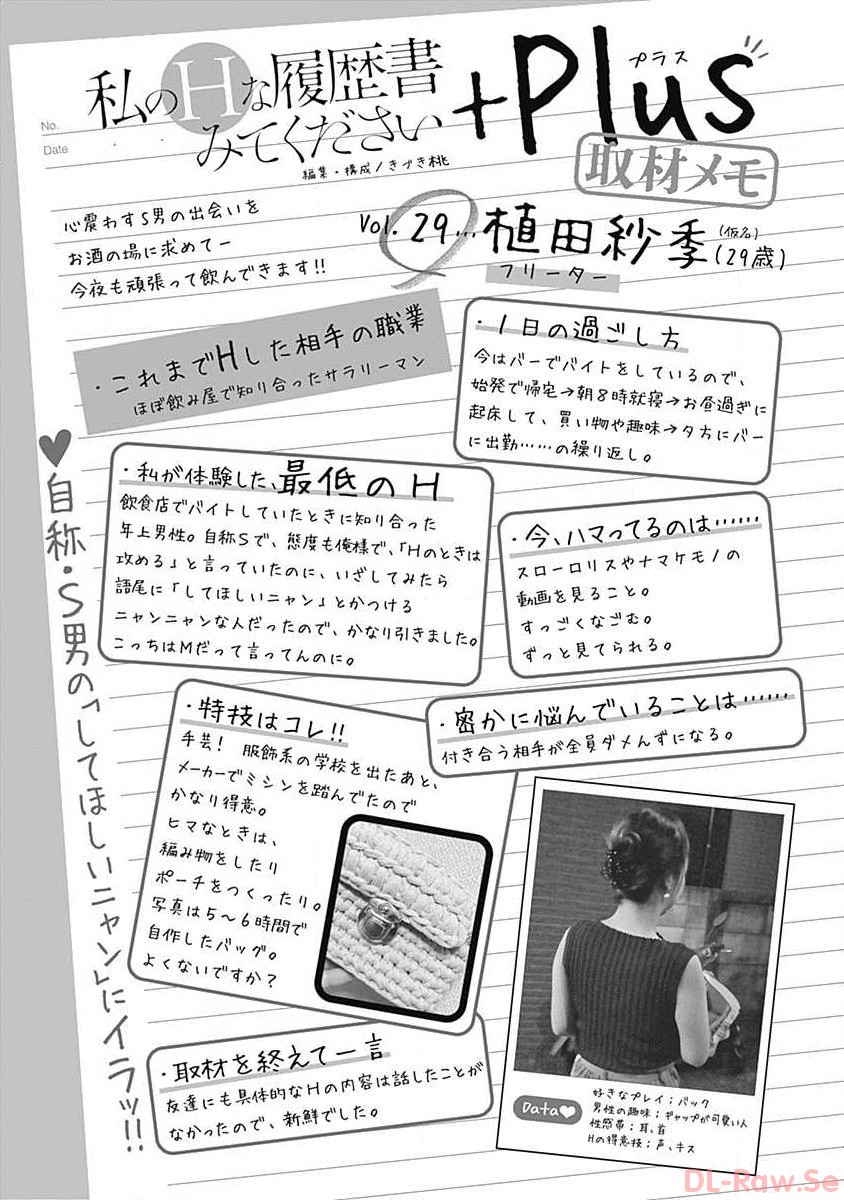 No.
Date
私のHな履歴書
みてください
+Plus
プラス
編集・構成/きづき桃
取材メモ
心震わすS男の出会いを
お酒の場に求めてー
今夜も頑張って飲んできます!!
Vol. 29…植田紗季(仮名)(29歳)
フリーター
・これまでHした相手の職業
ほぼ飲み屋で知り合ったサラリーマン
・1日の過ごし方
今はバーでバイトをしているので、
始発で帰宅→朝8時就寝→お昼過ぎに
起床して、買い物や趣味→夕方にバー
に出勤……の繰り返し。
♥自称・S男の「してほしいニャン」にイラッ!!
・私が体験した、最低のH
飲食店でバイトしていたときに知り合った
年上男性。自称Sで、態度も俺様で、「Hのときは
攻める」と言っていたのに、いざしてみたら
語尾に「してほしいニャン」とかつける
ニャンニャンな人だったので、かなり引きました。
こっちはMだって言ってんのに。
・今、ハマってるのは……
スローロリスやナマケモノの
動画を見ること。
すっごくなごむ。
ずっと見てられる。
・特技はコレ!!
手芸! 服飾系の学校を出たあと、
メーカーでミシンを踏んでたので
かなり得意。
ヒマなときは、
編み物をしたり
ポーチをつくったり。
写真は5~6時間で
自作したバッグ。
よくないですか?
・密かに悩んでいることは……
付き合う相手が全員ダメんずになる。
・取材を終えて一言
友達にも具体的なHの内容は話したことが
なかったので、新鮮でした。
Data♥
好きなプレイ:バック
男性の趣味:ギャップが可愛い人
性感帯:耳、首
Hの得意技:声、キス
DL-Raw.Se